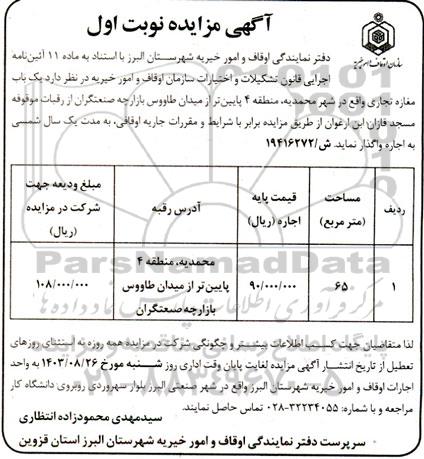 آگهی مزایده نوبت اول
سازمان اوقاف و امور خیریه
دفتر نمایندگی اوقاف و امور خیریه شهرستان البرز با استناد به ماده ۱۱ آئین‌نامه
اجرایی قانون تشکیلات و اختیارات سازمان اوقاف و امور خیریه در نظر دارد یک باب
مغازه تجاری واقع در شهر محمدیه، منطقه ۴ پایین‌تر از میدان طاووس بازارچه صنعتگران از رقبات موقوفه
مسجد قازان ابن ارغوان از طریق مزایده برابر با شرایط و مقررات جاریه اوقافی، به مدت یک سال شمسی
به اجاره واگذار نماید. ش/۱۹۴۱۶۲۷۲
ردیف
مساحت
(متر مربع)
قیمت پایه
اجاره (ریال)
آدرس رقبه
مبلغ ودیعه جهت
شرکت در مزایده
(ریال)
۱
۶۵
۹۰/۰۰۰/۰۰۰
محمدیه، منطقه ۴
پایین‌تر از میدان طاووس
بازارچه صنعتگران
۱۰۸/۰۰۰/۰۰۰
ParsNamadData
مرکز فرآوری اطلاعات پارس نماد داده‌ها
لذا متقاضیان جهت کسب اطلاعات بیشتر و چگونگی شرکت در مزایده همه روزه به استثنای روزهای
تعطیل از تاریخ انتشار آگهی مزایده لغایت پایان وقت اداری روز شنبه مورخ ۱۴۰۳/۰۸/۲۶ به واحد
اجارات اوقاف و امور خیریه شهرستان البرز واقع در شهر صنعتی البرز بلوار سهروردی روبروی دانشگاه کار
مراجعه و با شماره: ۳۲۲۳۴۰۵۵-۰۲۸ تماس حاصل نمایند.
سیدمهدی محمودزاده انتظاری
سرپرست دفتر نمایندگی اوقاف و امور خیریه شهرستان البرز استان قزوین